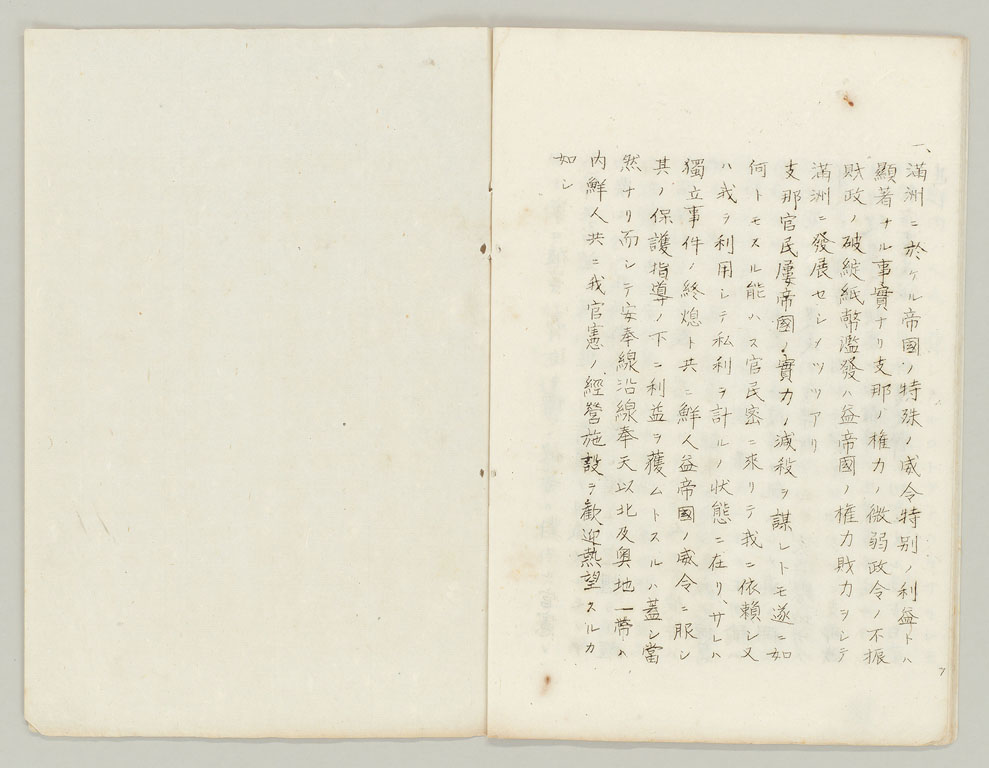 一、満洲ニ於ケル帝國ノ特殊ノ威令特別ノ利益トハ
顯著ナル事實ナリ支那ノ権力ノ微弱政令ノ不振
財政ノ破綻紙幣濫發ハ益帝國ノ権力財力ヲシテ
満洲ニ發展セシメツツアリ
支那官民屢帝國ノ實力ノ減殺ヲ謀レトモ遂ニ如
何トモスル能ハス官民密ニ来リテ我ニ依頼シ又
ハ我ヲ利用シテ私利ヲ計ルノ状態ニ在リ、サレハ
獨立事件ノ終熄ト共ニ鮮人益帝國ノ威令ニ服シ
其ノ保護指導ノ下ニ利益ヲ獲ムトスルハ蓋シ當
然ナリ而シテ安奉線沿線奉天以北及奥地一帯ハ
内鮮人共ニ我官憲ノ經營施設ヲ歓迎熱望スルカ
如シ
7